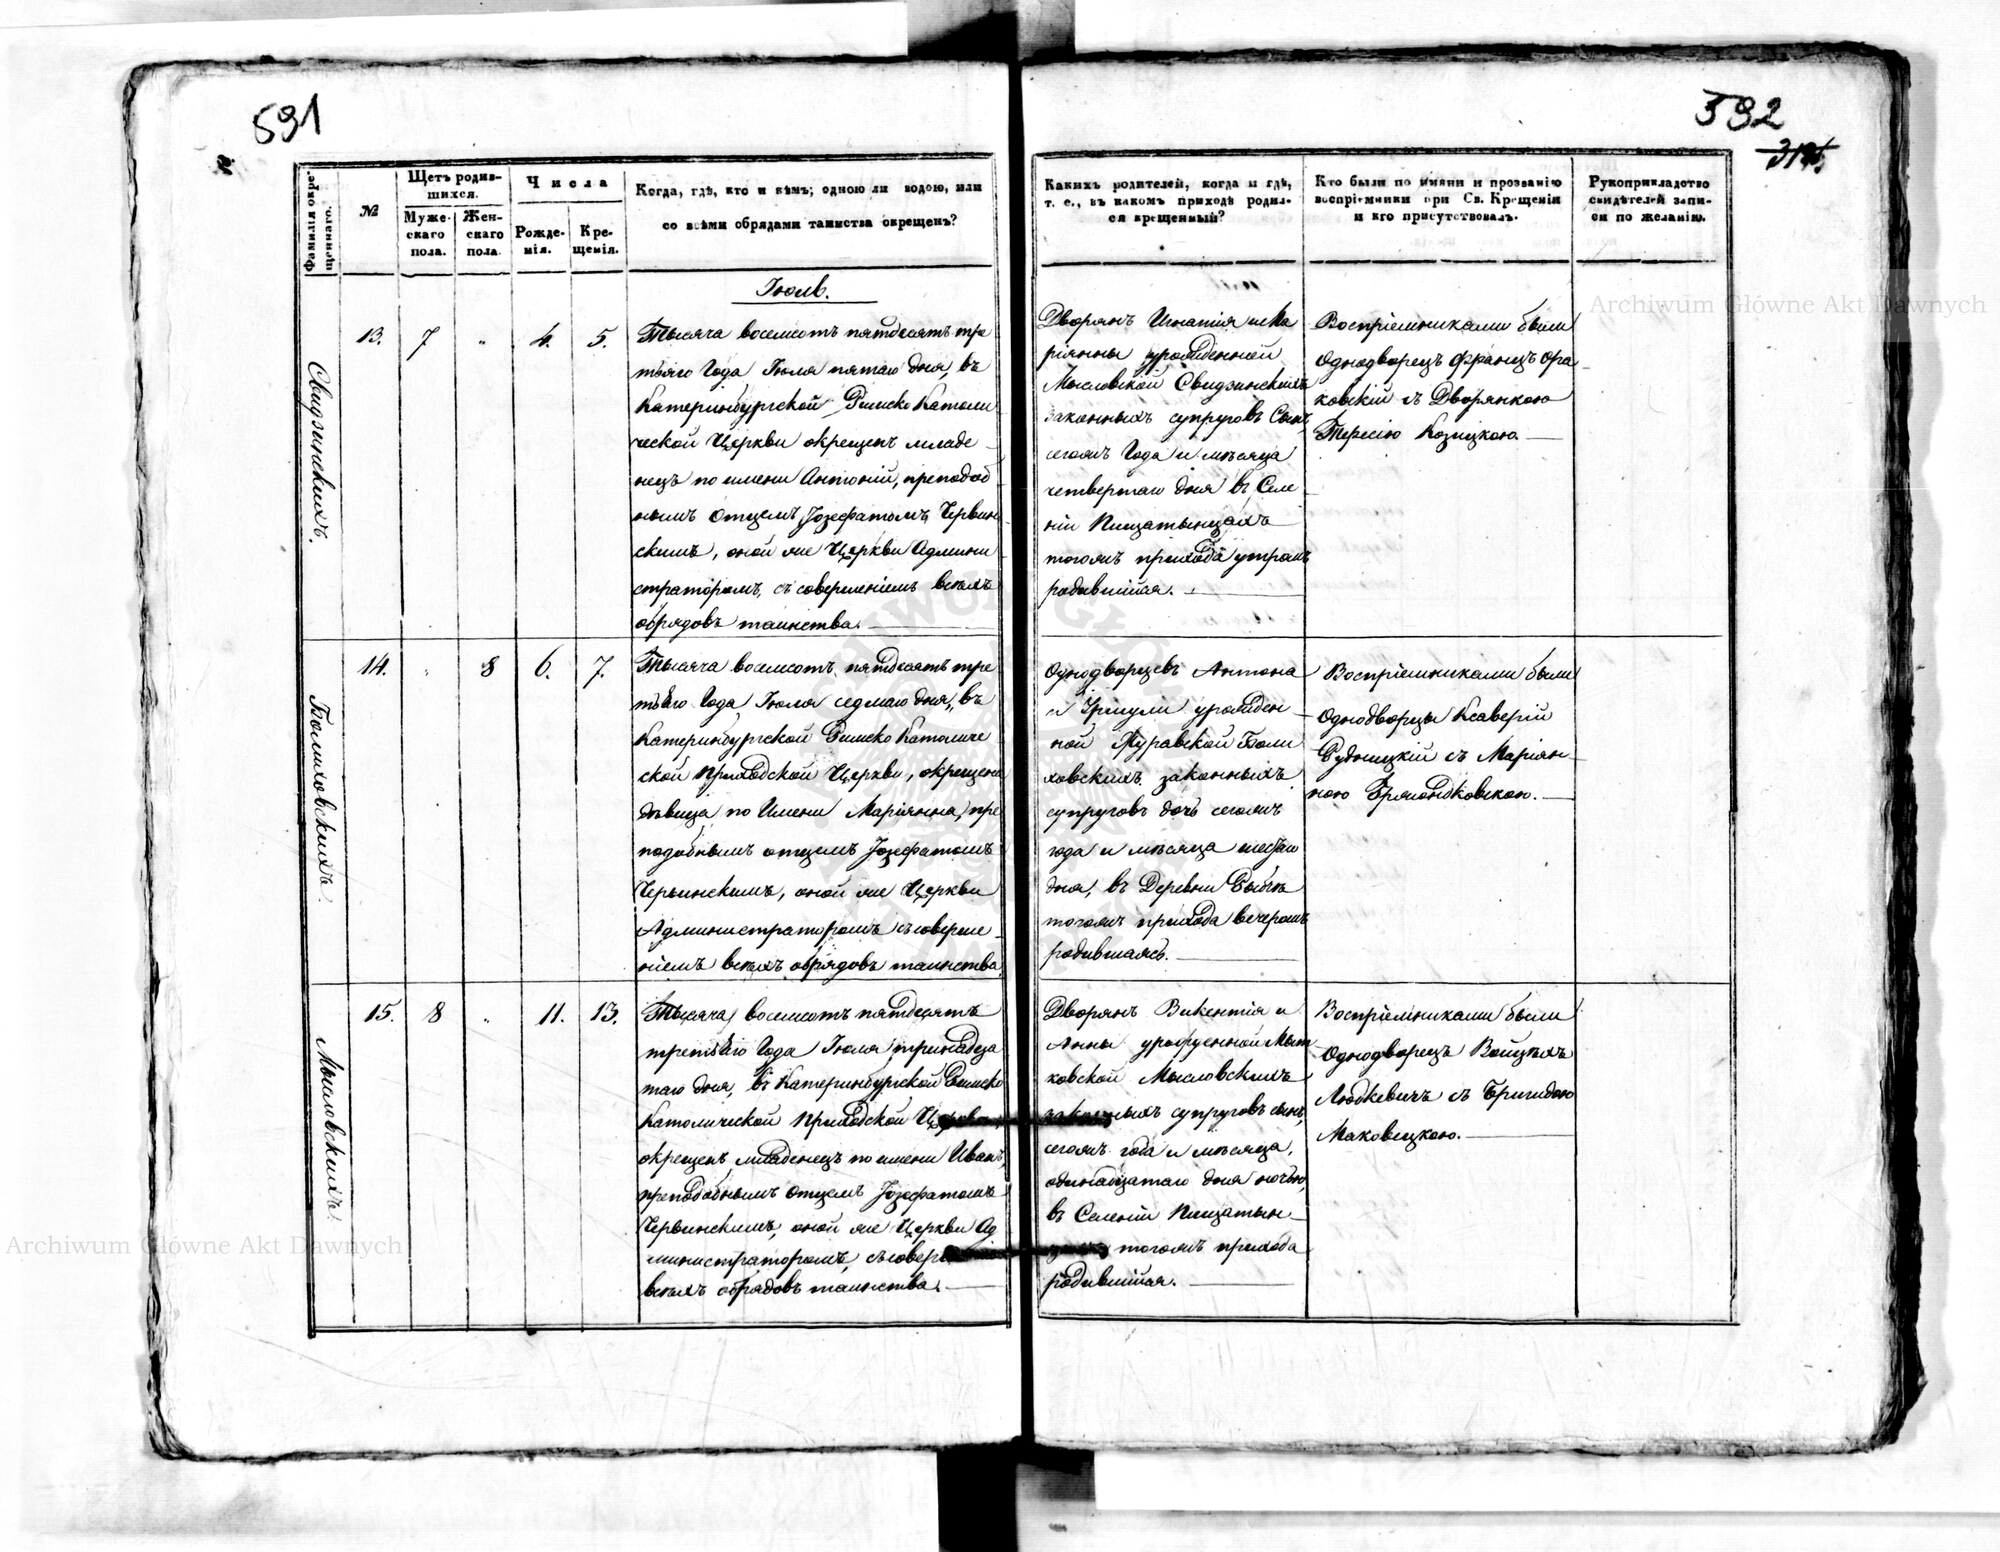 591
592
Фамилія окрещеннаго.
№
Щетъ родившихся.
Мужескаго пола.
Женскаго пола.
Числа
Рожденія.
Крещенія.
Когда, гдѣ, кто и кѣмъ; одною ли водою, или
со всѣми обрядами таинства окрещенъ?
Каких родителей, когда и гдѣ,
т. е., въ какомъ приходѣ родил-
ся крещенный?
Кто были по имяни и прозванію
воспріемники при Св. Крещеніи
и кто присутствовалъ.
Рукоприкладство
свидѣтелей запи-
си по желанію.
Іюль.
Свидзинскихъ.
13.
7
"
4.
5.
Тысяча восемсотъ пятдесятъ тре
тьяго Года Іюля пятаго дня, въ
Катеринбургской Римско Католи
ческой Церкви окрещенъ младе-
нецъ по имени Антоній, преподоб
нымъ Отцемъ Іозефатомъ Червин
скимъ, оной же Церкви Админи-
страторомъ, съ совершеніемъ всѣхъ
обрядовъ таинства.
Дворянъ Игнатія и Ма
ріянны урожденной
Мысловской Свидзинскихъ
законныхъ супруговъ Сынъ,
сегожъ Года и мѣсяца
четвертаго дня въ Селе-
ніи Пищатынцахъ
тогожъ прихода утромъ
родившійся.
Воспріемниками были
Однодворецъ Францъ Ора-
ковскій съ Дворянкою
Тересію Козицкою.
Болиховскихъ.
14.
"
8
6.
7.
Тысяча восемсотъ пятдесятъ тре
тьяго Года Іюля седмаго дня, въ
Катеринбургской Римско Католиче
ской Приходской Церкви, окрещена
дѣвица по Имени Маріянна, пре
подобнымъ отцемъ Іозефатомъ
Червинскимъ, оной же Церкви
Администраторомъ съ соверше-
ніемъ всѣхъ обрядовъ таинства.
Однодворцевъ Антона
и Уршули урожден-
ной Журавской Боли
ховскихъ законныхъ
супруговъ дочь сегожъ
года и мѣсяца шестаго
дня, въ Деревни
тогожъ прихода вечеромъ
родившаясь.
Воспріемниками были
Однодворцы Ксаверій
Рудницкій съ Маріян-
ною
Мысловскихъ.
15.
8
"
11.
13.
Тысяча восемсотъ пятдесятъ
третьяго Года Іюля тринадца
таго дня, въ Катеринбургской Римско
Католической Приходской Церкви,
окрещенъ младенецъ по имени Иванъ,
преподобнымъ Отцемъ Іозефатомъ
Червинскимъ, оной же Церкви Ад
министраторомъ, съ совер
всѣхъ обрядовъ таинства.
Дворянъ Викентія и
Анны урожденной Мыт
ковской Мысловскихъ
законныхъ супруговъ сынъ,
сегожъ года и мѣсяца,
одинадцатаго дня ночью,
въ Селеніи Пищатын-
тогожъ прихода
родившійся.
Воспріемниками были
Однодворецъ Войцѣхъ
Людкевичъ съ Бригидою
Маковецкою.
Archiwum Główne Akt Dawnych
Archiwum Główne Akt Dawnych